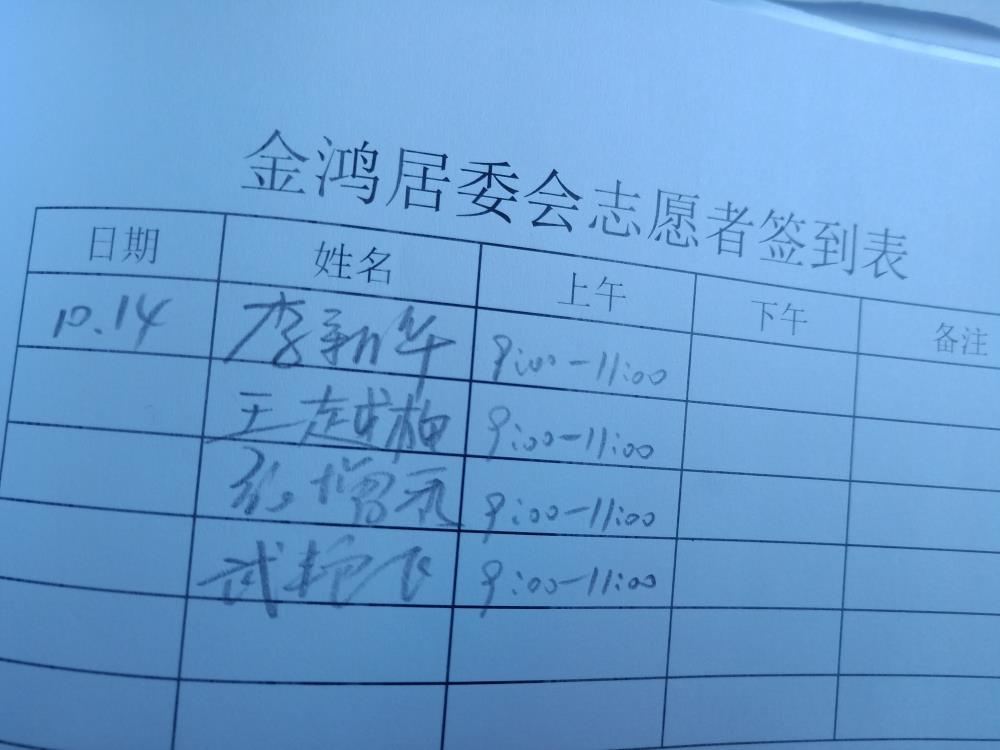 金鸿居委会志愿者签到表
日期 姓名 上午 下午 备注
10.14 李新华 9:00-11:00
王越柏 9:00-11:00
张增 9:00-11:00
武艳飞 9:00-11:00